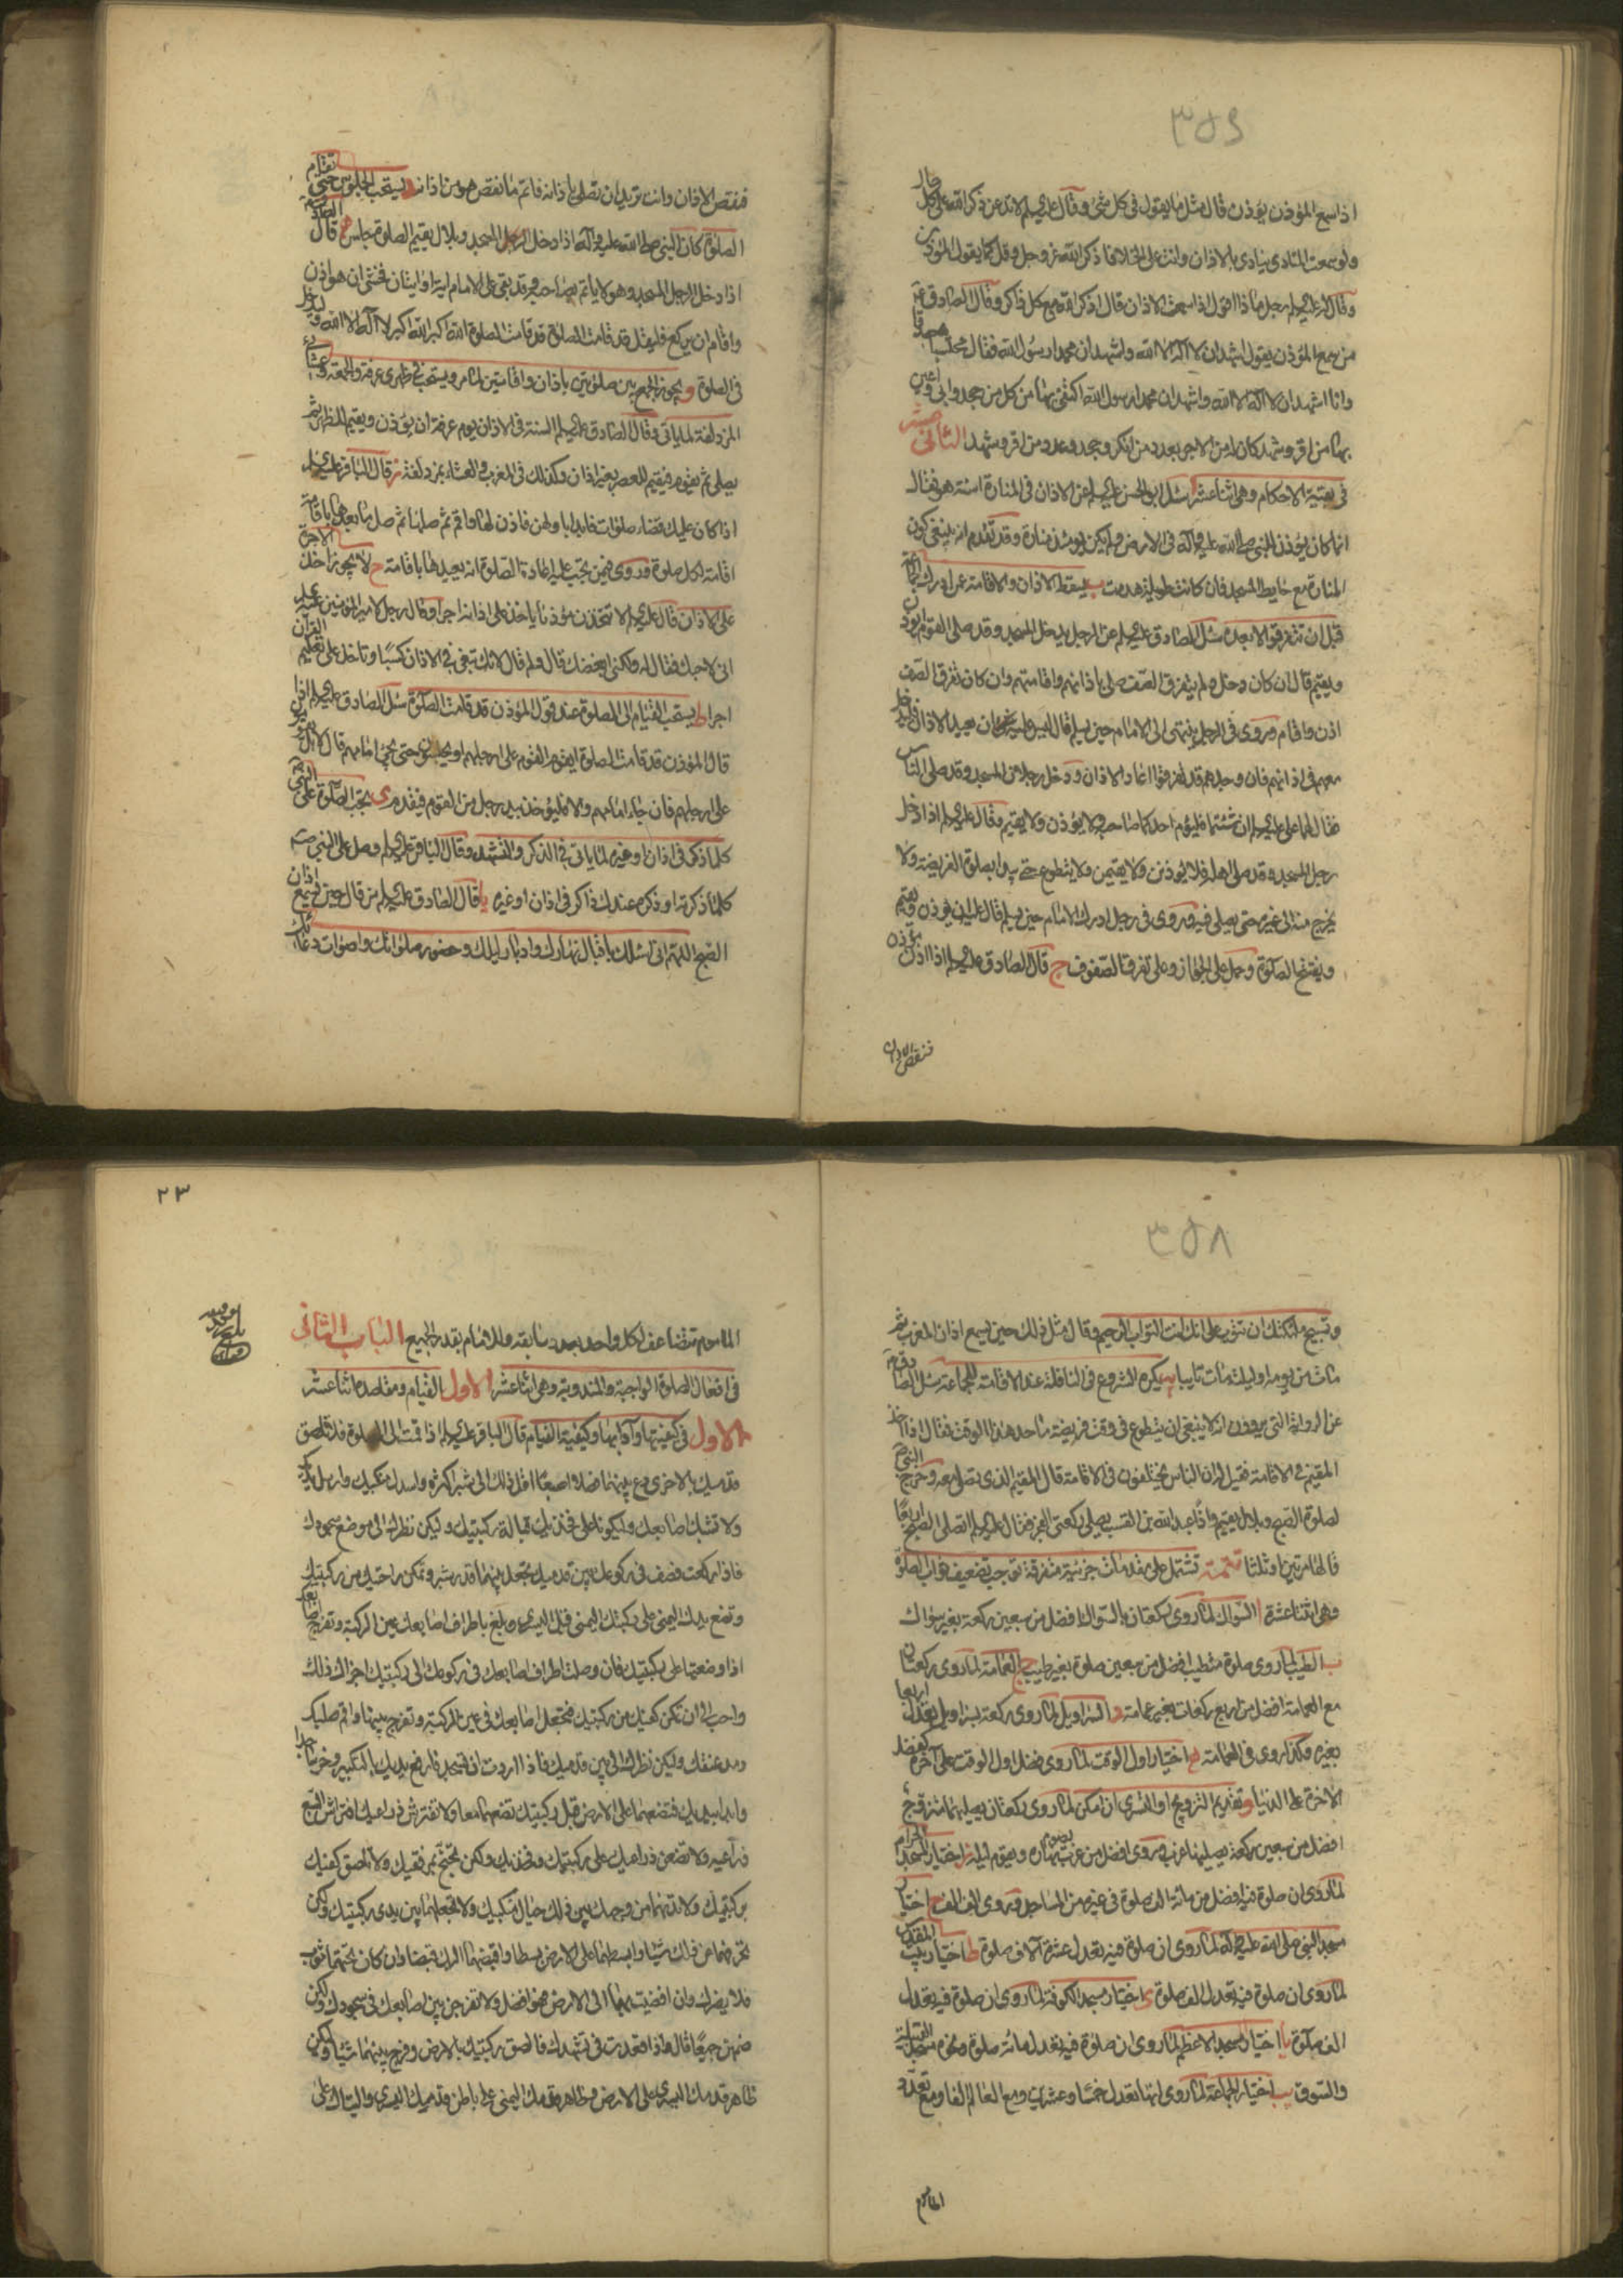 ٣٥٦
اذا سمع المؤذن يؤذن قال مثل ما يقول فى كل شئ وقال عليه السلام لا تدعن ذكر الله على كل حال
ولو سمعت المنادى ينادى بالاذان وانت على الخلا فاذكر الله عز وجل وقل كما يقول المؤذن
وقال له عليه السلام رجل ماذا اقول اذا سمعت الاذان قال اذكر الله مع كل ذاكر وقال الصادق
من سمع المؤذن يقول اشهد ان لا اله الا الله واشهد ان محمدا رسول الله فقال محتسبا
وانا اشهد ان لا اله الا الله واشهد ان محمدا رسول الله اكتفى بهما من كل من جحد وابى واعين
بهما من اقر وشهد كان له من الاجر بعدد من انكر وجحد وعدد من اقر وشهد الثانى عشر
فى بقية الاحكام وهى اثنا عشر ا سئل ابو الحسن عليه السلام عن الاذان فى المنارة اسنة هو فقال
انما كان يؤذن للنبى صلى الله عليه وآله فى الارض ولم يكن يومئذ منارة وقد تقدم انه ينبغى كون
المنارة مع حايط المسجد فان كانت طويلة هدمت ب يسقط الاذان والاقامة عمن ادرك الجماعة
قبل ان تتفرقوا لا بعده سئل الصادق عليه السلام عن الرجل يدخل المسجد وقد صلى القوم ايؤذن
ويقيم قال ان كان دخل ولم يتفرق الصف صلى باذانهم واقامتهم وان كان تفرق الصف
اذن واقام وروى فى الرجل ينتهى الى الامام حين يسلم قال ليس عليه ان يعيد الاذان فليدخل
معهم فى اذانهم فان وجدهم قد تفرقوا اعاد الاذان ودخل رجلان المسجد وقد صلى الناس
فقال لهما على عليه السلام ان شئتما فليؤم احدكما صاحبه ولا يؤذن ولا يقيم وقال عليه السلام اذا دخل
رجل المسجد وقد صلى اهله فلا يؤذنن ولا يقيمن ولا يتطوع حتى يبدا بصلوة الفريضة ولا
يخرج منه الى غيره حتى يصلى فيه وروى فى رجل ادرك الامام حين يسلم قال عليه ان يؤذن ويقيم
ويفتتح الصلوة وحمل على الجواز وعلى تفرق الصفوف ج قال الصادق عليه السلام اذا اذن مؤذن
فنقص الاذان
فنقص الاذان وانت تريد ان تصلى باذانه فاتم ما نقص هو من اذانه د يستحب الجلوس حتى تقام
الصلوة كان النبى صلى الله عليه وآله اذا دخل المسجد وبلال يقيم الصلوة جلس ه قال الصادق
اذا دخل الرجل المسجد وهو لا ياتم بصاحبه وقد بقى على الامام اية او ايتان فخشى ان هو اذن
واقام ان يركع فليقل قد قامت الصلوة قد قامت الصلوة الله اكبر الله اكبر لا اله الا الله وليدخل
فى الصلوة و يجوز الجمع بين صلوتين باذان واقامتين لما مر ويستحب فى ظهرى عرفة والجمعة وعشائى
المزدلفة لما ياتى وقال الصادق عليه السلام السنة فى الاذان يوم عرفة ان يؤذن ويقيم للظهر ثم
يصلى ثم يقوم فيقيم للعصر بغير اذان وكذلك فى المغرب والعشاء بمزدلفة ز قال الباقر عليه السلام
اذا كان عليك قضاء صلوات فابدا باولهن فاذن لها واقم ثم صلها ثم صل ما بعدها باقامة
اقامة لكل صلوة وروى فيمن يجب عليه اعادة الصلوة انه يعيدها باقامة ح لا يجوز اخذ الاجرة
على الاذان قال عليه السلام لا تتخذن مؤذنا ياخذ على اذانه اجرا وقال رجل لامير المؤمنين عليه
انى لاحبك فقال له ولكنى ابغضك قال ولم قال لانك تبغى فى الاذان كسبا وتاخذ على تعليم القرآن
اجرا ط يستحب القيام الى الصلوة عند قول المؤذن قد قامت الصلوة سئل الصادق عليه السلام اذا
قال المؤذن قد قامت الصلوة ايقوم القوم على ارجلهم او يجلسون حتى يجئ امامهم قال لا بل
على ارجلهم فان جاء امامهم والا فليؤخذ بيد رجل من القوم فيقدم ى تجب الصلوة على النبى
كلما ذكر فى اذان او غيره لما ياتى فى الذكر والتشهد وقال الباقر عليه السلام وصل على النبى
كلما ذكرته او ذكره عندك ذاكر فى اذان او غيره يا قال الصادق عليه السلام من قال حين يسمع اذان
الصبح اللهم انى اسئلك باقبال نهارك وادبار ليلك وحضور صلواتك واصوات دعائك
٣٥٨
وتسبيح ملائكتك ان تتوب على انك انت التواب الرحيم وقال مثل ذلك حين يسمع اذان المغرب ثم
مات من يومه او ليلته مات تايبا يب يكره الشروع فى النافلة عند الاقامة للجماعة سئل الصادق
عن الرواية التى يروون انه لا ينبغى ان يتطوع فى وقت فريضة ما حد هذا الوقت فقال اذا اخذ
المقيم فى الاقامة فقيل له ان الناس يختلفون فى الاقامة قال المقيم الذى تصلى معه وخرج النبى
لصلوة الصبح وبلال يقيم واذا عبد الله بن القشب يصلى ركعتى الفجر فقال عليه السلام اتصلى الصبح اربعا
قالها مرتين او ثلثا تتمة تشتمل على مقدمات جزئية متفرقة توجب تضعيف ثواب الصلوة
وهى اثنتا عشرة ا السواك لما روى ركعتان بالسواك افضل من سبعين ركعة بغير سواك
ب الطيب لما روى صلوة متطيب افضل من سبعين صلوة بغير طيب ج العمامة لما روى ركعتان
مع العمامة افضل من اربع ركعات بغير عمامة د السراويل لما روى ركعة بسراويل تعدل اربعا
بغيره وكذا روى فى العمامة ه اختيار اول الوقت لما روى فضل اول الوقت على آخره كفضل
الآخرة على الدنيا و تقديم التزويج او التسرى ان امكن لما روى ركعتان يصليهما متزوج
افضل من سبعين ركعة يصليها اعزب وروى افضل من عزب يصوم نهاره ويقوم ليله ز اختيار المسجد الحرام
لما روى ان صلوة فيه افضل من مائة الف صلوة فى غيره من المساجد وروى الف الف ح اختيار
مسجد النبى صلى الله عليه وآله لما روى ان صلوة فيه تعدل عشرة آلاف صلوة ط اختيار بيت المقدس
لما روى ان صلوة فيه تعدل الف صلوة ى اختيار مسجد الكوفة لما روى ان صلوة فيه تعدل
الف صلوة يا اختيار المسجد الاعظم لما روى ان صلوة فيه تعدل مائة صلوة ونحوه مسجد القبيلة
والسوق يب اختيار الجماعة لما روى انها تعدل خمسا وعشرين ومع العالم الفا ومع تعدد
الماموم
٢٣
الماموم تتضاعف لكل واحد بعدد سابقه وللامام بقدر الجميع الباب الثانى
فى افعال الصلوة الواجبة والمندوبة وهى اثنا عشر الاول القيام ومقاصده اثنا عشر
الاول فى كيفيتها وآدابها وكيفية القيام قال الباقر عليه السلام اذا قمت الى الصلوة فلا تلصق
قدميك بالاخرى دع بينهما فصلا اصبعا اقل ذلك الى شبر اكثره واسدل منكبيك وارسل يديك
ولا تشبك اصابعك وليكونا على فخذيك قبالة ركبتيك وليكن نظرك الى موضع سجودك
فاذا ركعت فصف فى ركوعك بين قدميك تجعل بينهما قدر شبر وتمكن راحتيك من ركبتيك
وتضع يدك اليمنى على ركبتك اليمنى قبل اليسرى وبلغ باطراف اصابعك عين الركبة وتفرج اصابعك
اذا وضعتها على ركبتيك فان وصلت اطراف اصابعك فى ركوعك الى ركبتيك اجزاك ذلك
واحب الى ان تمكن كفيك من ركبتيك فتجعل اصابعك فى عين الركبة وتفرج بينهما واقم صلبك
ومد عنقك وليكن نظرك الى بين قدميك فاذا اردت ان تسجد فارفع يديك بالتكبير وخر ساجدا
وابدا بيديك فتضعهما على الارض قبل ركبتيك تضعهما معا ولا تفترش ذراعيك افتراش السبع
ذراعيه ولا تضعن ذراعيك على ركبتيك وفخذيك ولكن تجنح بمرفقيك ولا تلصق كفيك
بركبتيك ولا تدنهما من وجهك بين ذلك حيال منكبيك ولا تجعلهما بين يدى ركبتيك ولكن
تحرفهما عن ذلك شيئا وابسطهما على الارض بسطا واقبضهما اليك قبضا وان كان تحتهما ثوب
فلا يضرك وان افضيت بهما الى الارض فهو افضل ولا تفرجن بين اصابعك فى سجودك ولكن
ضمهن جميعا قال واذا قعدت فى تشهدك فالصق ركبتيك بالارض وفرج بينهما شيئا وليكن
ظاهر قدمك اليسرى على الارض وظاهر قدمك اليمنى على باطن قدمك اليسرى واليتاك على